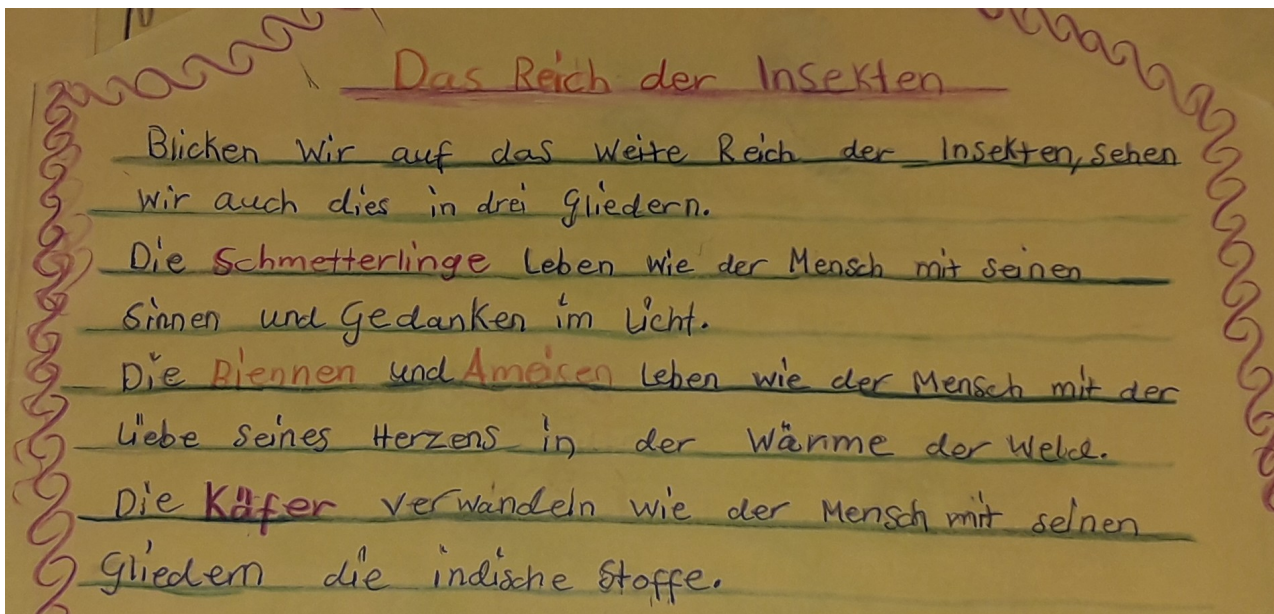 Das Reich der Insekten
Blicken wir auf das weite Reich der Insekten, sehen
wir auch dies in drei Gliedern.
Die Schmetterlinge Leben wie der Mensch mit seinen
Sinnen und Gedanken im Licht.
Die Biennen und Ameisen Leben wie der Mensch mit der
Liebe seines Herzens in der Wärme der Weld.
Die Käfer verwandeln wie der Mensch mit seinen
Gliedern die indische Stoffe.